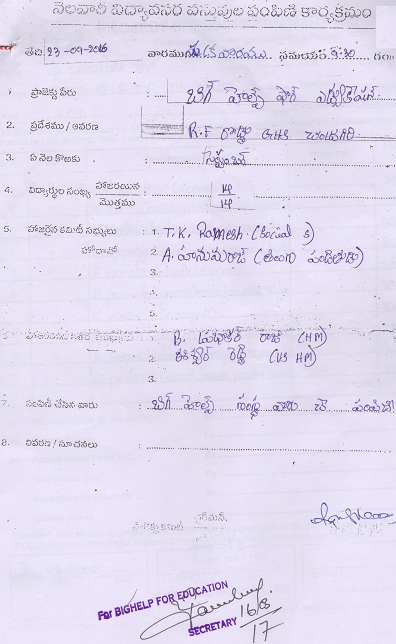 నెలవారీ విద్యావసర వస్తువుల పంపిణీ కార్యక్రమం
తేది 23-09-2016 వారము సమయం 9:30 గం
1. ప్రాజెక్టు పేరు : బిగ్ హెల్ప్ ఫౌర్ ఎడ్యుకేషన్
2. ప్రదేశము / ఆవరణ : R.F GHS
3. ఏ నెల కొరకు : సెప్టెంబర్
4. విద్యార్థుల సంఖ్య హాజరయిన 14
మొత్తము 14
5. హాజరైన కమిటీ సభ్యులు : 1. T.K. Ramesh (
హోదాతో 2. A. హనుమరాజ్ (తెలుగు పండితుడు)
3.
4.
5.
6. : 1. B. ప్రభాకర్ రాజు (HM)
2. ఈశ్వర్ రెడ్డి (HM)
3.
7. పంపిణీ చేసిన వారు : బిగ్ హెల్ప్ సంస్థ వారు చే
8. వివరణ / సూచనలు :
ఛైర్మన్.
For BIGHELP FOR EDUCATION
SECRETARY 16/8/17